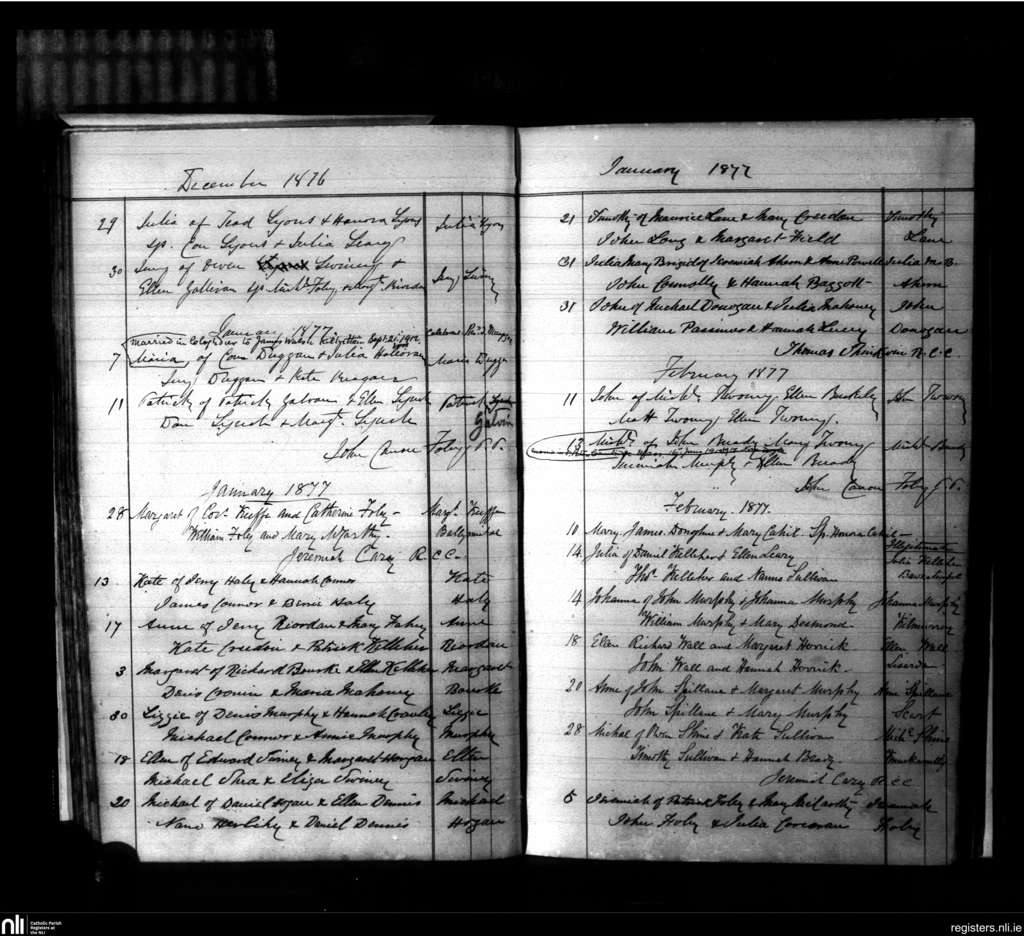 December 1876
29 Julia of Tead Lyons & Hanora Lyons Julia Lyons
Sp. Con Lyons & Julia Leary
30 Jerry of Owen Swiney &
Ellen Gallivan Sp. Michl. Foley & Margt. Riordan Jerry Swiney
January 1877.
married in to James Walsh Sept. 21. 1902.
7 Maria of Con Duggan & Julia Halloran Maria Duggan
Jerry Duggan & Kate
11 Patrick of Patrick Galvan & Ellen Lynch Patrick
Dan Lynch & Margt. Lynch Galvin
John Canon Foley P.P.
January 1877
28 Margaret of Cors. Keeffe and Catherine Foley - Margt. Keeffe
William Foley and Mary McCarthy -
Jeremiah Carey R.C.C.
13 Kate of Jerry Haly & Hannah Connor Kate
James Connor & Haly Haly
17 Anne of Jerry Riordan & Mary Fahey Anne
Kate Creedon & Patrick Kelleher Riordan
3 Margaret of Richard Bourke & Ellen Kelleher Margaret
Denis Cronin & Maria Mahoney Bourke
30 Lizzie of Denis Murphy & Hannah Crowley Lizzie
Michael Connor & Annie Murphy Murphy
18 Ellen of Edward Swiney & Margaret Horgan Ellen
Michael Shea & Eliza Swiney Swiney
20 Michael of Daniel Hogan & Ellen Dennis Michael
Nano Herlihy & Daniel Dennis Hogan
January 1877
21 Timothy of Maurice Lane & Mary Creedon Timothy
John Long & Margaret Field Lane
31 Julia Mary Brigid of Jeremiah Ahern & Anne Powell Julia M. B.
John Connolly & Hannah Baggott Ahern
31 John of Michael Donogan & Julia Mahoney John
William & Hannah Donogan
Thomas R.C.C.
February 1877
11 John of Michl. Twomy Ellen Buckley John Twomy
Matt Twomy Ellen Twomy.
13 Michl. of John Bready Mary Twomy Michl. Bready
Jeremiah Murphy & Ellen Bready
John Canon Foley P.P.
February 1877.
10 Mary James Donoghue & Mary Cahil Sp. Honora Cahil - Illegitimate
14 Julia of Daniel Kelliher & Ellen Leary Julia Kelliher
Thos. Kelliher and Nanno Sullivan
14 Johanna of John Murphy & Johanna Murphy Johanna Murphy
William Murphy & Mary Desmond Kilmurry
18 Ellen Richard Wall and Margaret Horrick - Ellen Wall
John Wall and Hannah Horrick -
20 Anne of John Spillane & Margaret Murphy Anne Spillane
John Spillane & Mary Murphy Scart
28 Michal of Owen Shine & Kate Sullivan Michl. Shine
Timothy Sullivan & Hannah Bready.
Jeremiah Carey R.C.C.
5 Jeremiah of Patrick Foley & Mary McCarthy Jeremiah
John Foley & Julia Corcoran Foley
nli Catholic Parish Registers at the NLI
registers.nli.ie